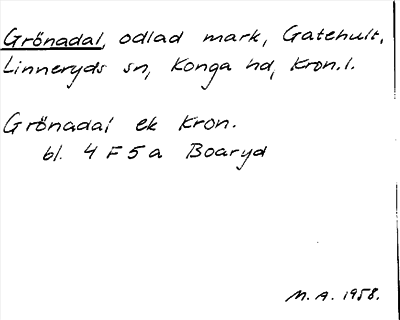 Grönadal, odlad mark, Gatehult,
Linneryds sn, Konga hd, Kron.l.
Grönadal ek Kron.
bl. 4 F 5 a Boaryd
M.A. 1958.